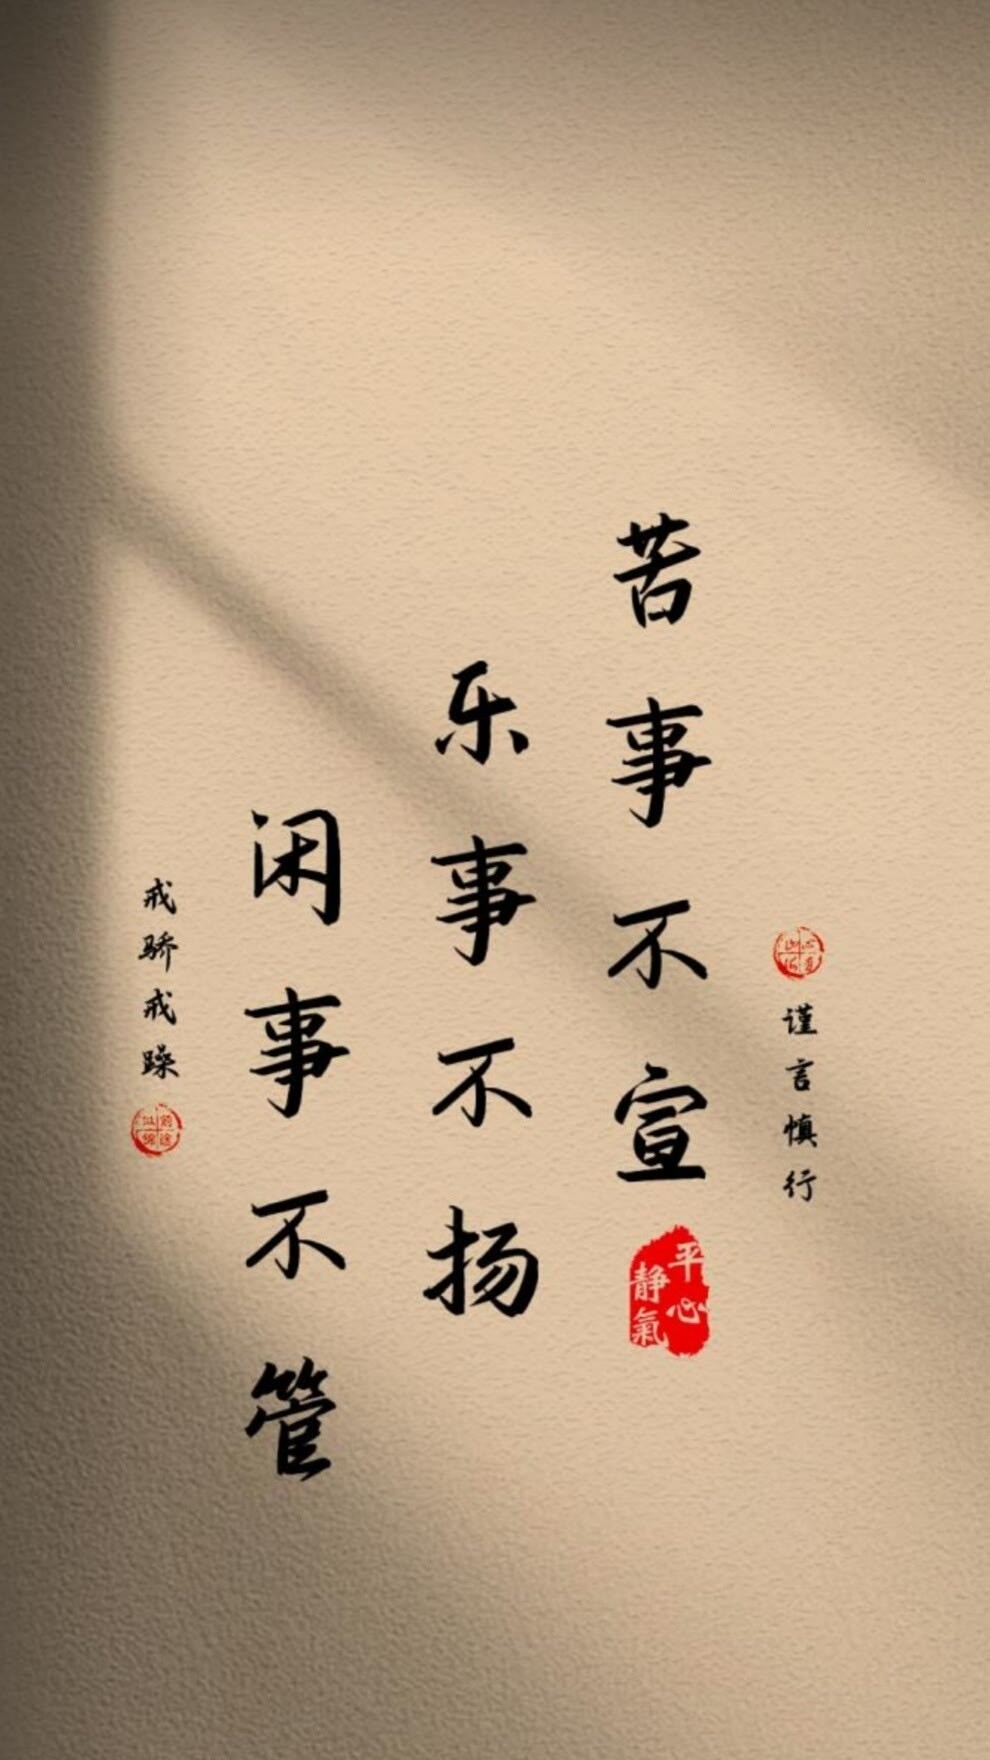 谨言慎行
苦事不宣
平心
静氣
乐事不扬
闲事不管
戒骄戒躁
前途
似锦